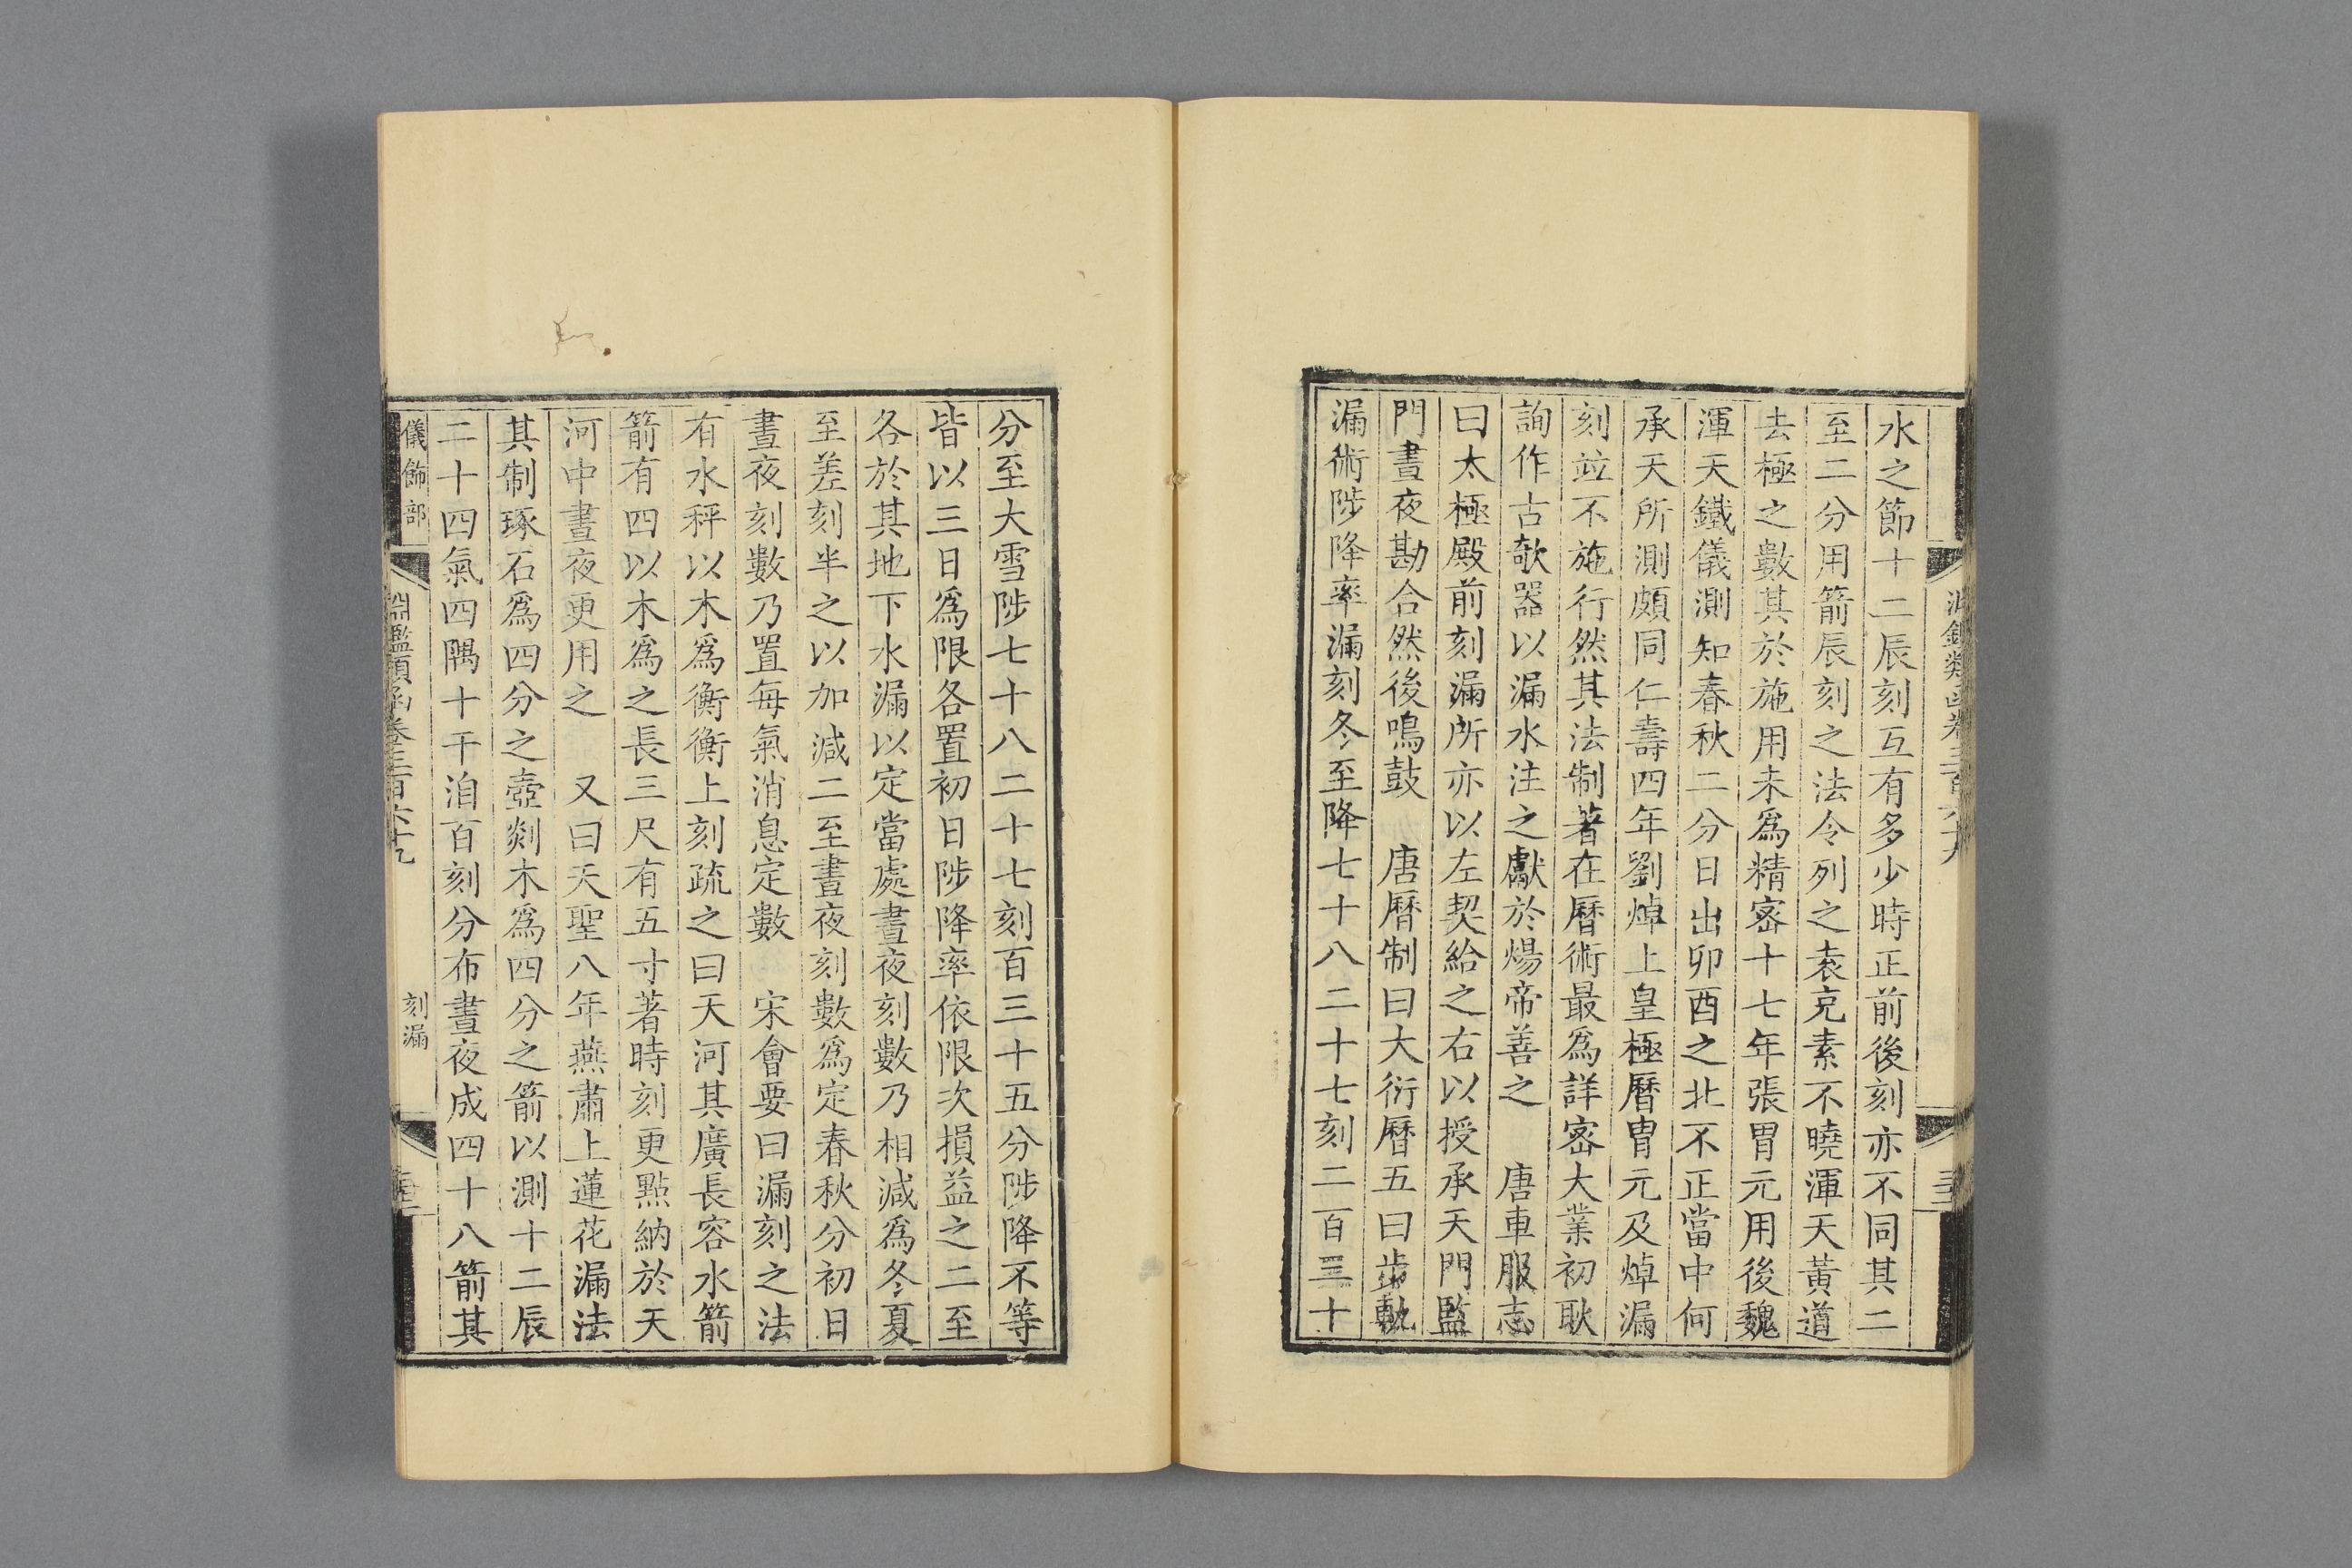 水之節十二辰刻互有多少時正前後刻亦不同其二
至二分用箭辰刻之法令列之袁充素不曉渾天黃道
去極之數其於施用未爲精密十七年張冑元用後魏
渾天鐵儀測知春秋二分日出卯酉之北不正當中何
承天所測頗同仁壽四年劉焯上皇極曆冑元及焯漏
刻竝不施行然其法制著在曆術最爲詳密大業初耿
詢作古欹器以漏水注之獻於煬帝善之　唐車服志
曰太極殿前刻漏所亦以左契給之右以授承天門監
門晝夜勘合然後鳴鼓　唐曆制曰大衍曆五曰步軌
漏術陟降率漏刻冬至降七十八二十七刻二百三十
分至大雪陟七十八二十七刻百三十五分陟降不等
皆以三日爲限各置初日陟降率依限次損益之二至
各於其地下水漏以定當處晝夜刻數乃相減爲冬夏
至差刻半之以加減二至晝夜刻數爲定春秋分初日
晝夜刻數乃置每氣消息定數　宋會要曰漏刻之法
有水秤以木爲衡衡上刻疏之曰天河其廣長容水箭
箭有四以木爲之長三尺有五寸著時刻更點納於天
河中晝夜更用之　又曰天聖八年燕肅上蓮花漏法
其制琢石爲四分之壺剡木爲四分之箭以測十二辰
二十四氣四隅十干洎百刻分布晝夜成四十八箭其
儀飾部
淵鑑類函卷三百六十九
刻漏